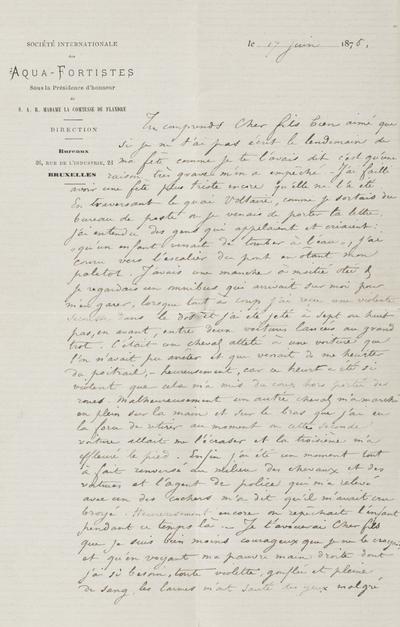 SOCIÉTÉ INTERNATIONALE
des
AQUA-FORTISTES
Sous la Présidence d'honneur
de
S. A. R. MADAME LA COMTESSE DE FLANDRE
DIRECTION
Bureaux
26, RUE DE L'INDUSTRIE, 21
BRUXELLES
le 17 juin 1876,
Tu comprends Cher fils bien aimé que
si je ne t'ai pas écrit le lendemain de
ma fête comme je te l'avais dit c'est qu'une
raison très grave m'en a empêché. J'ai failli
avoir une fête plus triste encore qu'elle ne l'a été
En traversant le quai Voltaire, comme je sortais du
bureau de poste où je venais de porter ta lettre,
j'ai entendu des gens qui appelaient et criaient:
"qu'un enfant venait de tomber à l'eau", j'ai
couru vers l'escalier du pont en ôtant mon
paletot. J'avais une manche à moitié ôtée &
je regardais un omnibus qui arrivait sur moi pour
m'en garer, lorsque tout à coup j'ai reçu une violente
secousse dans le dos et j'ai été jeté à sept ou huit
pas, en avant, entre deux voitures lancées au grand
trot. C'était un cheval attelé à une voiture que
l'on n'avait pu arrêter et qui venait de me heurter
du poitrail, - heureusement, car ce heurt a été si
violent que cela m'a mis du coup hors portée des
roues. Malheureusement un autre cheval m'a marché
en plein sur la main et sur le bras que j'ai eu
la force de retirer au moment où cette seconde
voiture allait me l'écraser et la troisième m'a
effleuré le pied. Enfin j'ai été un moment tout
à fait renversé au milieu des chevaux et des
voitures et l'agent de police qui m'a relevé
avec un des cochers m'a dit qu'il m'avait cru
broyé. Heureusement encore on repêchait l'enfant
pendant ce temps là. - Je t'avouerai Cher fils
que je suis bien moins courageux que je ne le croyais
et qu'en voyant ma pauvre main droite dont
j'ai si besoin, toute violette, gonflée et pleine
de sang, les larmes m'ont sauté des yeux malgré